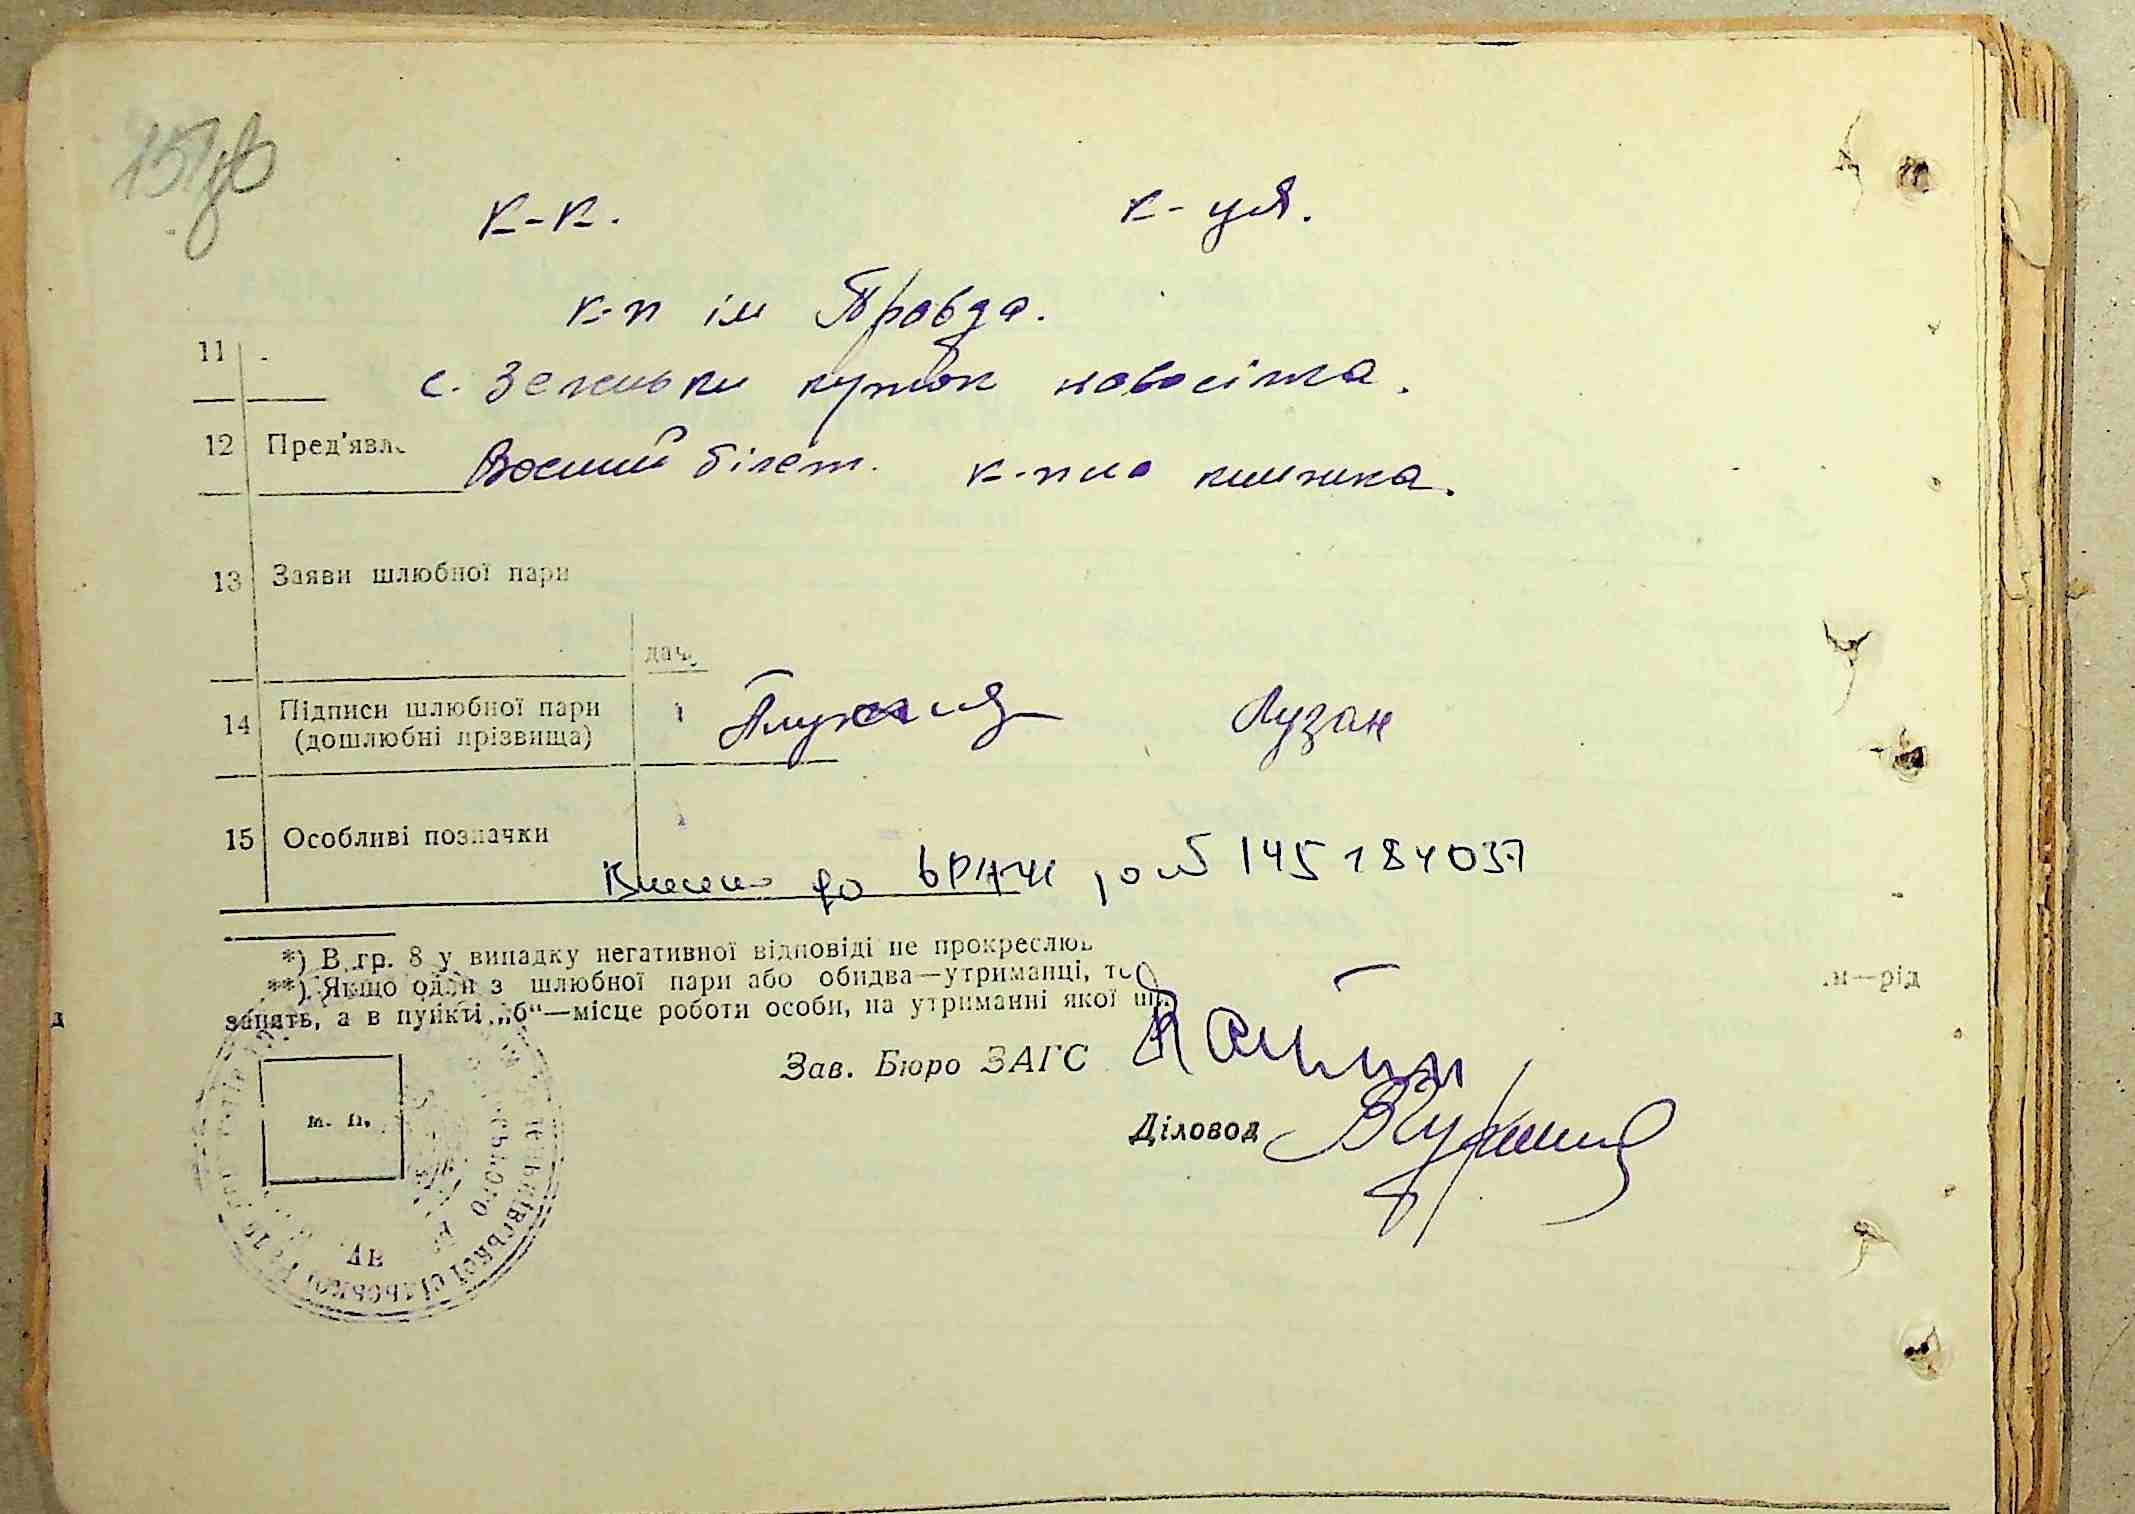 151зв
к-к. к-ця.
к-п ім Правда.
11
с. Зеленьки куток новосілка.
12 Пред'явл
Воєний білет. к-пна книжка.
13 Заяви шлюбної пари
14 Підписи шлюбної пари
(дошлюбні прізвища)
Лузан
15 Особливі позначки
Внесено до 145184037
*) В гр. 8 у випадку негативної відповіді не прокреслюв
**) Якщо один з шлюбної пари або обидва—утриманці, то
занять, а в пункті „б“—місце роботи особи, на утриманні якої
м—рід
Зав. Бюро ЗАГС
м. п.
Діловод